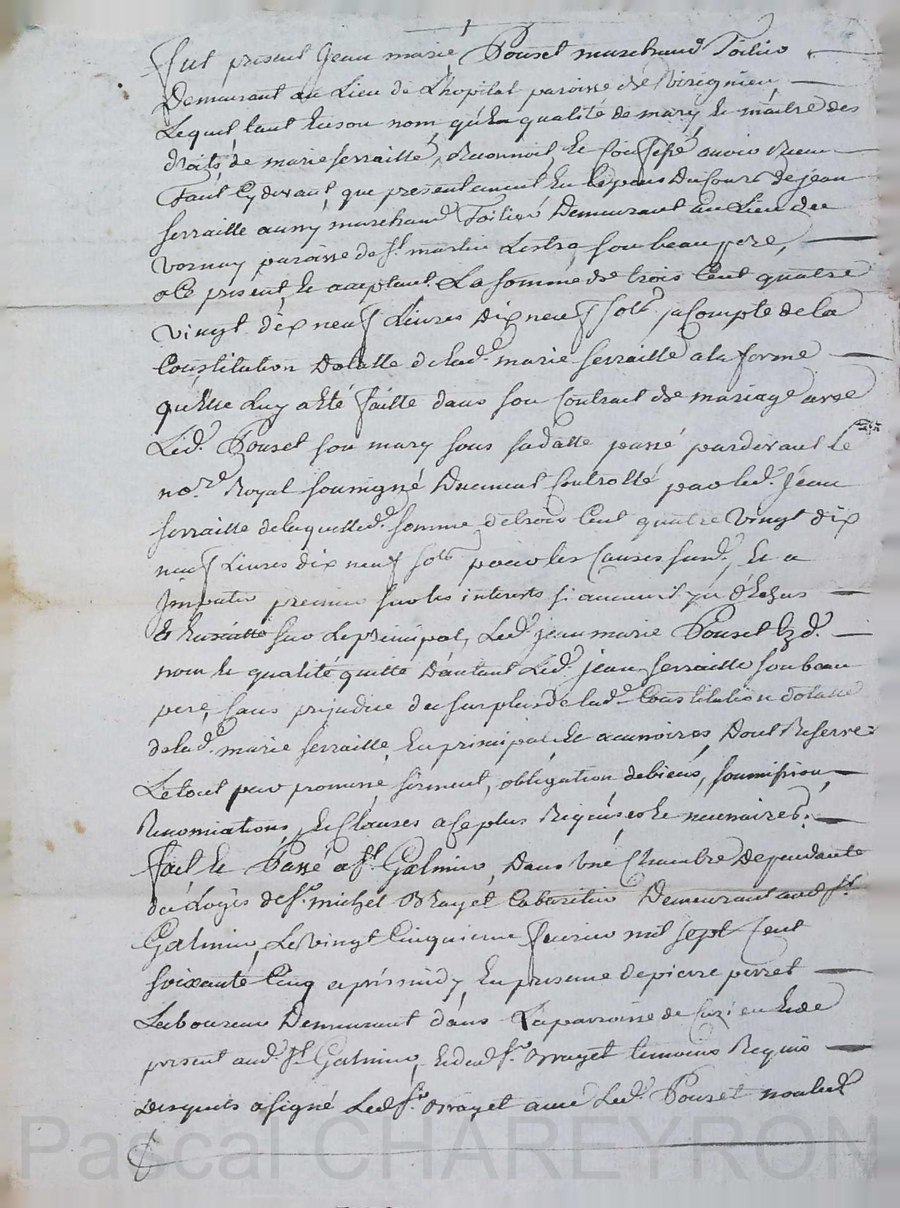 fut présent Jean marie Pouset marchand Toilier
Demeurant au Lieu de L'hopital paroisse de
Lequel tant en son nom qu'en qualité de mary et maitre des
droits de marie ferraille, Reconnoit et Confesse avoir Receu
tant cy devant que présentement en Espesses Du Cours de jean
ferraille aussy marchand Toilier Demeurant au Lieu de
paroisse de st. martin Lestra, son beau pere,
a Ce present et acceptant La somme de trois Cent quatre
vingt dix neuf Livres dix neuf sols, a Compte de la
Constitution Dotalle de lad. marie ferraille a la forme
qu'elle Luy a Eté faitte dans son Contrat de mariage avec
Led. Pouset son mary sous sa datte passé pardevant le
nore. Royal soussigné Duement Controllé par led. Jean
ferraille de laquelled. somme de trois Cent quatre vingt dix
neuf Livres dix neuf sols pour les Causes susd. Et a
Imputer premier sur les interets si aucuns y a d'Echus
Et Ensuitte sur Le principal, Led. jean marie Pouset Ezd.
nom et qualité quitte D'autant Led. jean ferraille son beau
pere, sans prejudice du surplus de lad. Constitution dotalle
de lad. marie ferraille En principal Et accessoires Dont Reserve
Le tout par promesse serment, obligation de biens, soumission
Renonciations, et Clauses a Ce plus Requises et necessaires.
fait et Passé a st. Galmier, Dans Une Chambre Dependante
du Logis de sr. michel Brayet Cabaretier Demeurant aud. st.
Galmier, Le vingt Cinquieme fevrier mil sept Cent
soixante Cinq apres midy, En presence de pierre perret
Laboureur Demeurant dans La parroisse de Cuzieu Ede
present aud. st. Galmier, Et dud. sr. Brayet temoins Requis
Desquels a signé Led. sr. Brayet avec Led. Pouset non led.
Pascal CHAREYRON